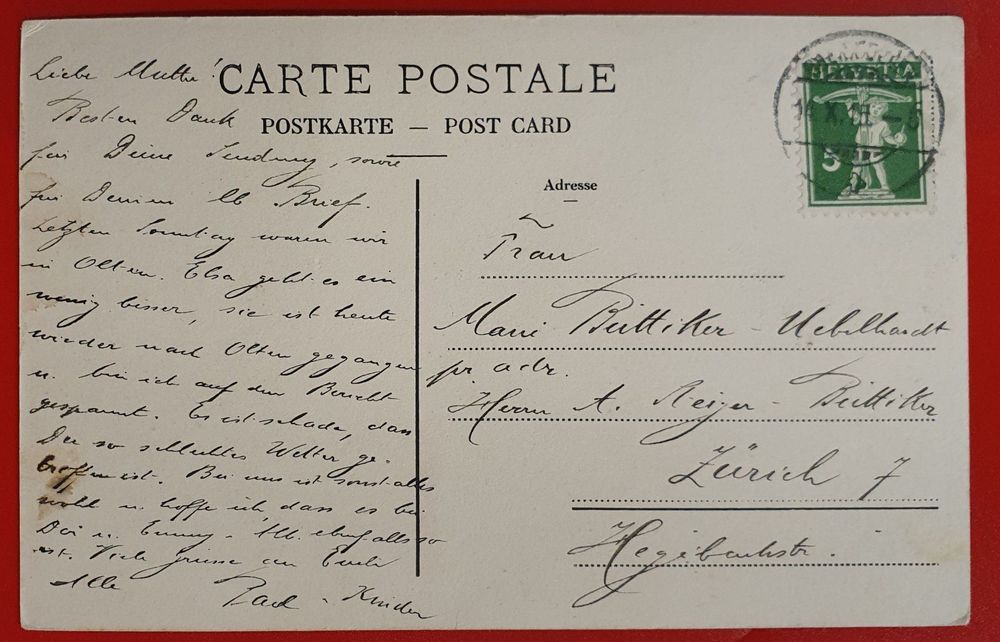 CARTE POSTALE
POSTKARTE — POST CARD
Liebe Mutter!
Besten Dank
für Deine Sendung, sowie
für Deinen lb Brief.
Letzten Sonntag waren wir
in Olten. Elsa geht es ein
wenig besser, sie ist heute
wieder nach Olten gegangen
u. bin ich auf den Bericht
gespannt. Es ist schade, dass
Du so schlechtes Wetter ge-
troffen ist. Bei uns ist sonst alles
wohl u. hoffe ich dass es bei
Dir u. ebenfalls so
ist. Viele Grüsse an Euch
Alle
Kinder
HELVETIA
5
Adresse
Frau
Marie Büttiker-Uebelhardt
pr adr.
Herrn A. Büttiker
Zürich 7
Hegibachstr.